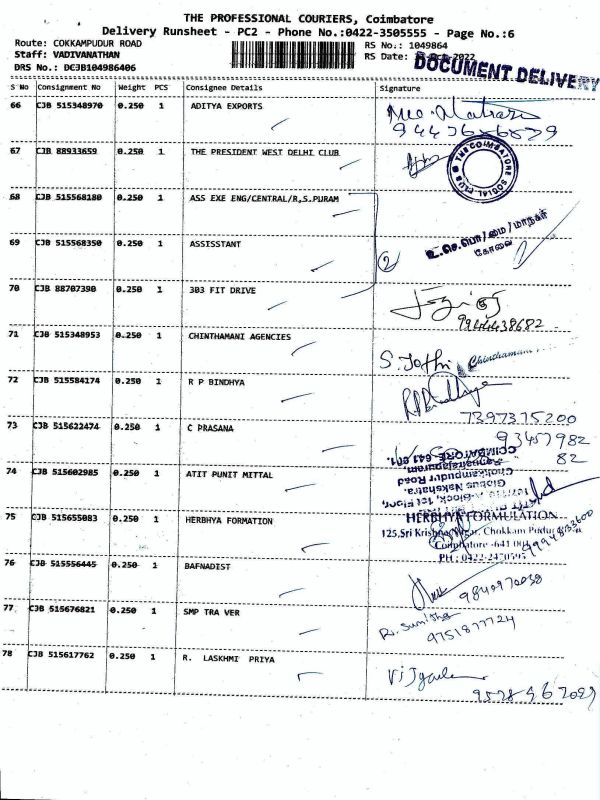 THE PROFESSIONAL COURIERS, Coimbatore
Delivery Runsheet - PC2 - Phone No.:0422-3505555 - Page No.:6
Route: COKKAMPUDUR ROAD RS No.: 1049864
Staff: VADIVANATHAN RS Date: 2022
DRS No.: DCJB104986406 DOCUMENT DELIVERY
S No Consignment No Weight PCS Consignee Details Signature
66 CJB 515348970 0.250 1 ADITYA EXPORTS
67 CJB 88933659 0.250 1 THE PRESIDENT WEST DELHI CLUB THE COIMBATORE SOCIAL CLUB
68 CJB 515568180 0.250 1 ASS EXE ENG/CENTRAL/R,S.PURAM
உ.செ.பொ/மை/மாநகர்
கோவை
69 CJB 515568350 0.250 1 ASSISSTANT 2
70 CJB 88707390 0.250 1 303 FIT DRIVE
9944438682
71 CJB 515348953 0.250 1 CHINTHAMANI AGENCIES
S. Jothi Chinthamani
72 CJB 515584174 0.250 1 R P BINDHYA
RPBindhya
7397375200
73 CJB 515622474 0.250 1 C PRASANA
93457982
82
74 CJB 515602985 0.250 1 ATIT PUNIT MITTAL
COIMBATORE-641 001.
Chokkampudur Road
Globus Nakshatra,
-Block, 1st Floor,
75 CJB 515655083 0.250 1 HERBHYA FORMATION
HERBHYA FORMULATION
125,Sri Krishna Nagar, Chokkam Pudur
Coimbatore -641 001
PH : 0422-2470595
9994893600
76 CJB 515556445 0.250 1 BAFNADIST
9840970038
77 CJB 515676821 0.250 1 SMP TRA VER
R. Sumitha
9751877724
78 CJB 515617762 0.250 1 R. LASKHMI PRIYA